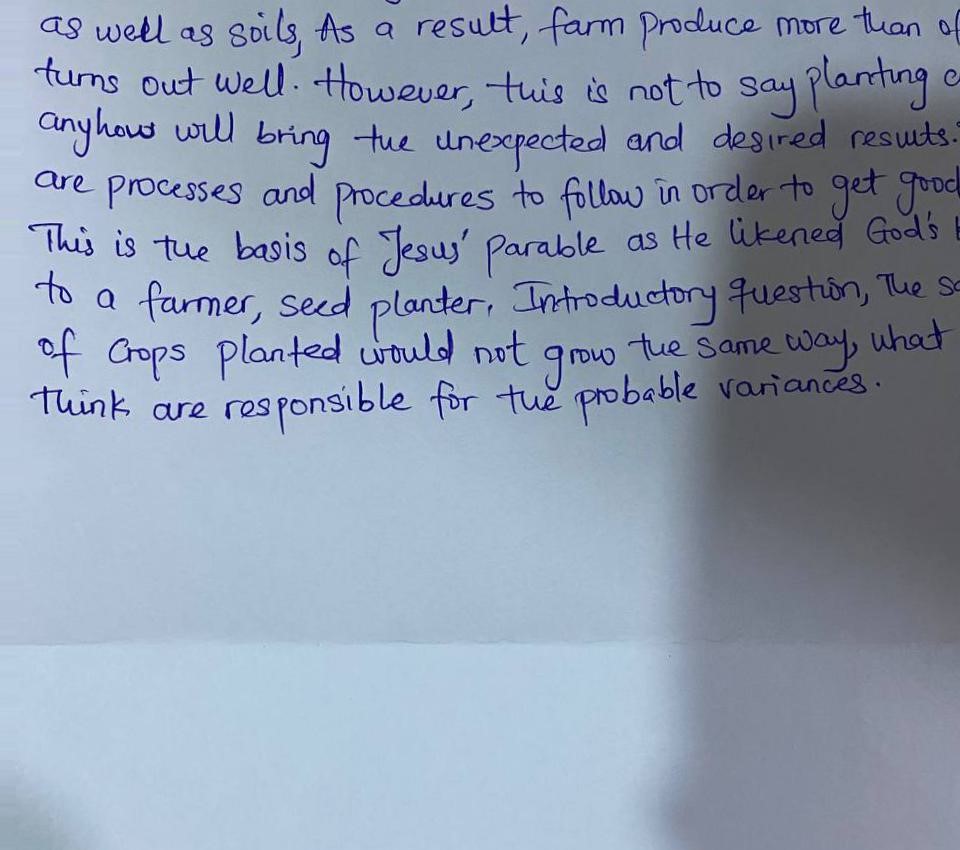 as well as soils, As a result, farm produce more than of
turns out well. However, this is not to say planting c
anyhow will bring the unexpected and desired results.
are processes and procedures to follow in order to get good
This is the basis of Jesus' Parable as He likened God's
to a farmer, seed planter. Introductory question, The s
of crops planted would not grow the same way, what
think are responsible for the probable variances.